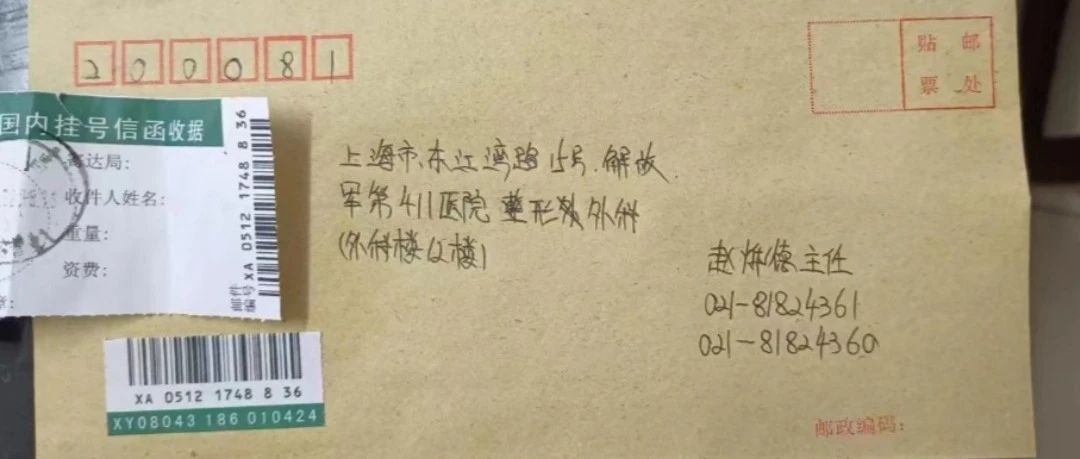 200081
贴 邮
票 处
国内挂号信函收据
寄达局:
收件人姓名:
重量:
资费:
邮件编号 XA 0512 1748 8 36
上海市东江湾路15号.解放
军第411医院 整形外科
(外科楼12楼)
赵烨德主任
021-81824361
021-81824360
XA 0512 1748 8 36
XY08043 186 010424
邮政编码: